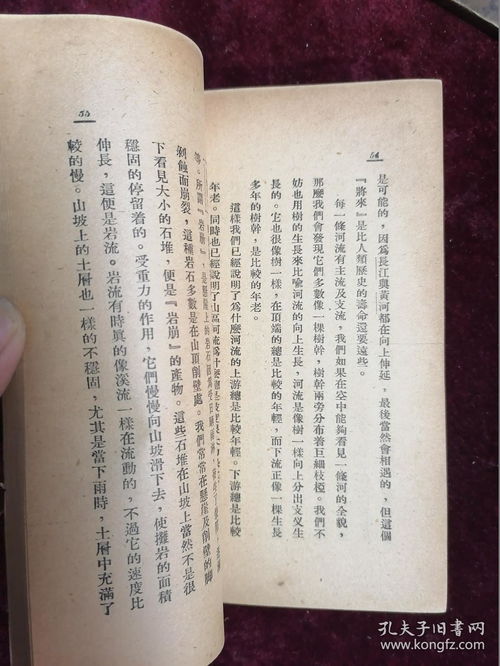 54
是可能的，因爲長江與黃河都在向上伸延，最後當然會相遇的，但這個
『將來』是比人類歷史的壽命還要遠些。
每一條河流有主流及支流，我們如果在空中能夠看見一條河的全貌，
那麼我們會發現它們多數像一棵樹幹，樹幹兩旁分布着巨細枝椏。我們不
妨也用樹的生長來比喻河流的向上生長，河流是像樹一樣向上分出支叉生
長的。它也很像樹一樣，在頂端的總是比較的年輕，而下流正像一棵生長
多年的樹幹，是比較的年老。
這樣我們已經說明了爲什麼河流的上游總是比較年輕。下游總是比較
年老。同時也已經說明了山區河流爲什麼總是
55
等。所謂『岩崩』，是懸崖上的岩石因爲受
剝蝕而崩裂，這種岩石多數是在山頂削壁處。我們常常在懸崖及削壁的脚
下看見大小的石堆，便是『岩崩』的產物。這些石堆在山坡上當然不是很
穩固的停留着的。受重力的作用，它們慢慢向山坡滑下去，使攤岩的面積
伸長，這便是岩流。岩流有時真的像溪流一樣在流動的，不過它的速度比
較的慢。山坡上的土層也一樣的不穩固，尤其是當下雨時，土層中充滿了
孔夫子旧書网
www.kongfz.com